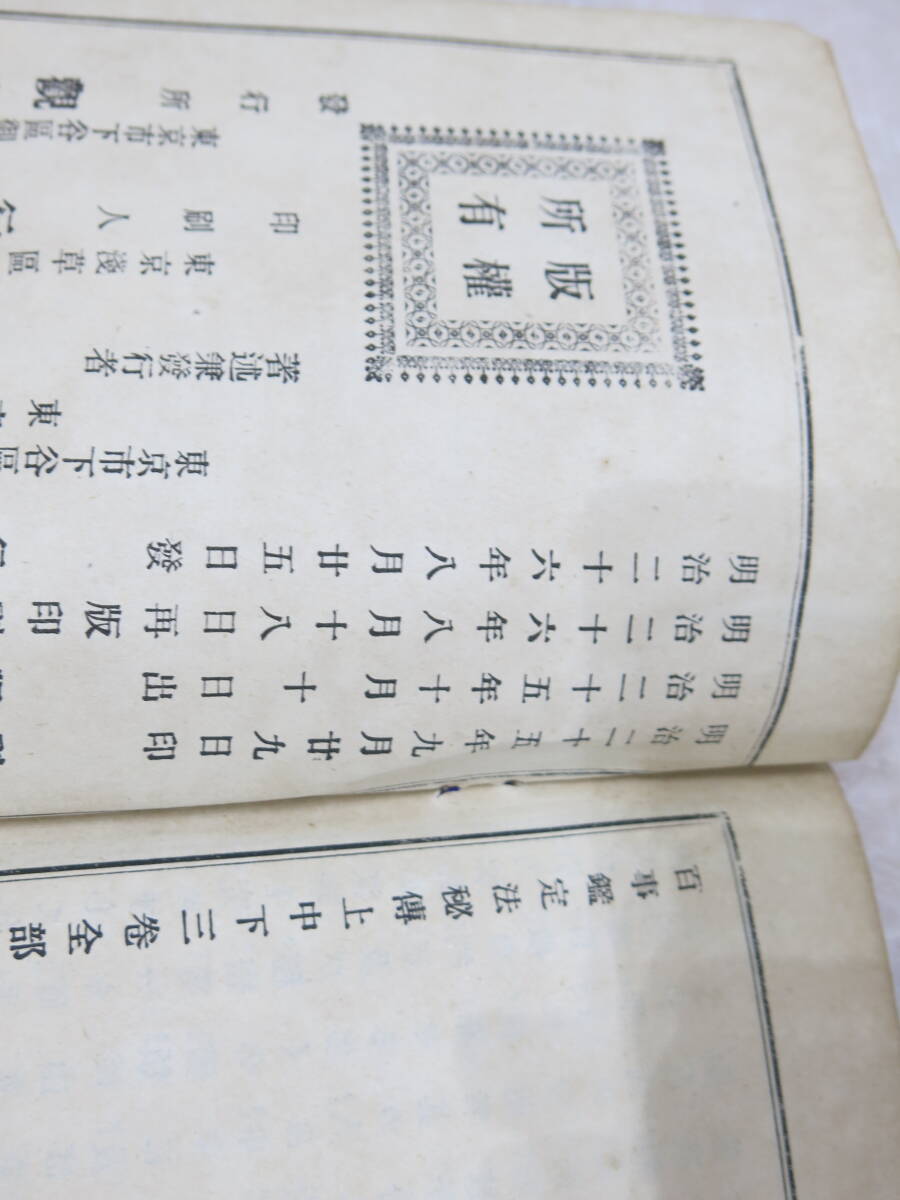 百事鑑定法秘傳上中下三卷全部
明治二十五年九月廿九日印
明治二十五年十月十日出
明治二十六年八月十八日再版印
明治二十六年八月廿五日發
東京市下谷區
東
著述兼發行者
東京淺草區
印刷人
東京市下谷區御
發行所 觀
版權
所有